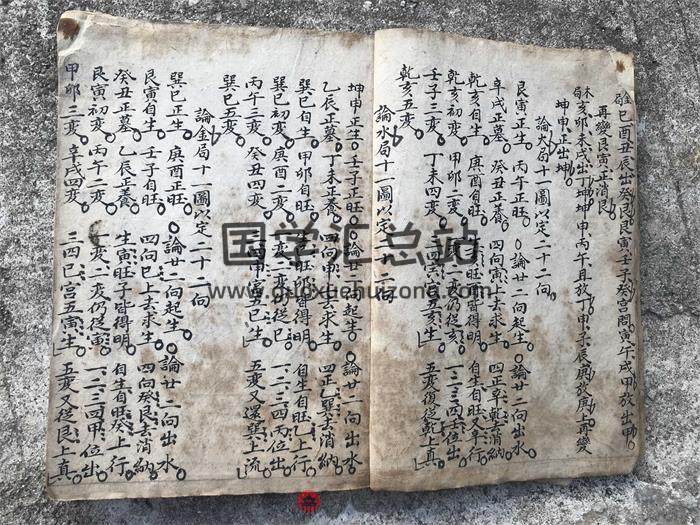 巳酉丑辰出癸艮艮寅壬子癸宮問寅午戌甲放出甲
再變艮寅正消艮
亥卯未戌出丁坤坤申丙午自放丁甲子辰庚放庚上再變
坤申正出坤
論火局十一圖以定二十二向
艮寅正生。丙午正旺。○論廿二向起生。○論廿二向出水
辛戌正墓。癸丑正養。四向寅上去求生。四正辛乾去消納
乾亥自生。庚酉自旺。皆得明。自生自旺又辛行
乾亥初變。甲卯二變。二變仍從亥。一二三四壬位出
壬子三變。丁未四變。三四宮五寅生。五變復從乾上真
乾亥五變。
論水局十一圖以定二十二向
坤申正生。壬子正旺。○論廿二向起生。論廿二向出水
乙辰正墓。丁未正養。四向申上去求生。四正乙巽去消納
巽巳自生。甲卯自旺。生旺卯皆得明。自生自旺乙上行
巽巳初變。庚酉二變。一變二變仍從巳。一二三四丙位出
丙午三變。癸丑四變。三四甲宮五巳生。五變又還巽上流
巽巳五變。
論金局十一圖以定二十二向
巽巳正生。庚酉正旺。○論廿二向起生。論廿二向出水
艮寅自生。壬子自旺。四向巳上去求生。四向癸艮去消納
癸丑正墓。乙辰正養。生寅旺子皆得明。自生自旺癸上行
艮寅初變。丙午二變。一變二變仍從寅。一二三四甲位出
甲卯三變。辛戌四變。三四巳宮五寅生。五變又從艮上真
国学汇总站
www.guoxuehuizong.com